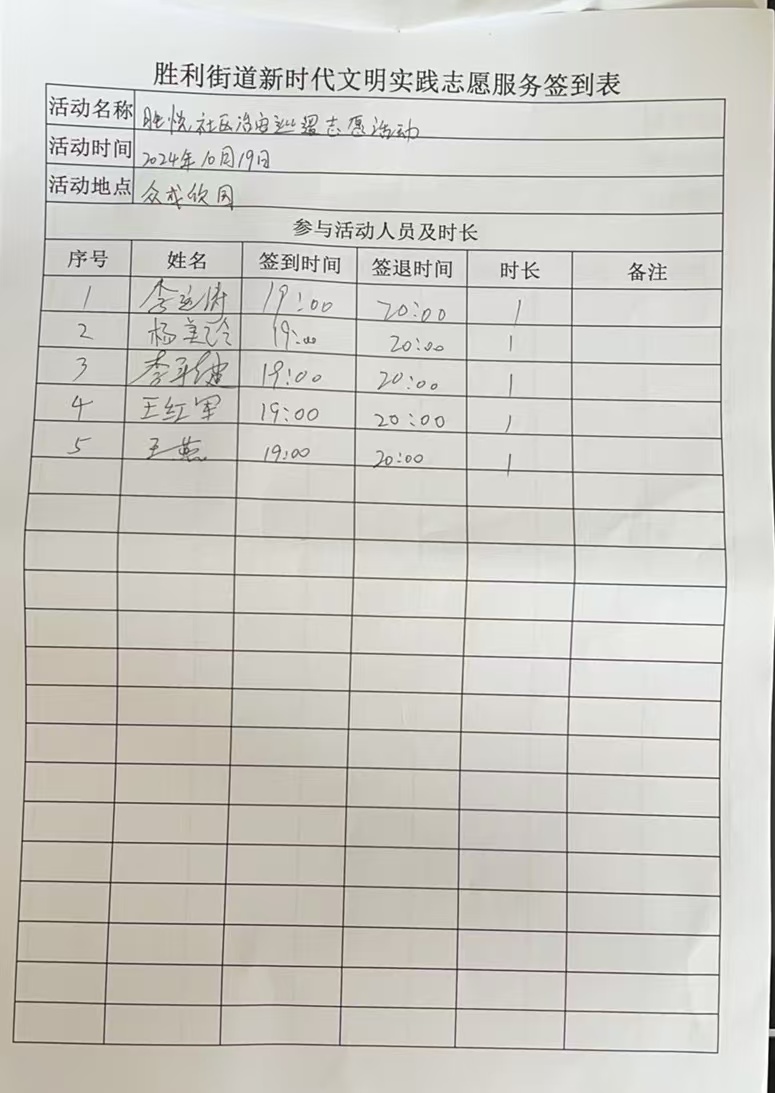 胜利街道新时代文明实践志愿服务签到表
活动名称 胜悦社区治安巡逻志愿活动
活动时间 2024年10月19日
活动地点 众成欣园
参与活动人员及时长
序号 姓名 签到时间 签退时间 时长 备注
1 李 19:00 20:00 1
2 杨美玲 19:00 20:00 1
3 李 19:00 20:00 1
4 王红军 19:00 20:00 1
5 王燕 19:00 20:00 1